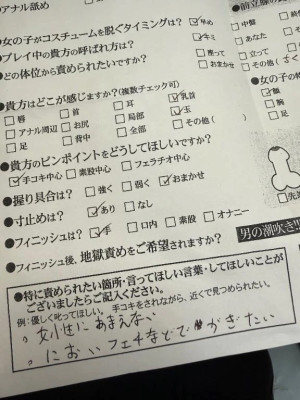 アナル舐め
●女の子がコスチュームを脱ぐタイミングは? ☑早め
●プレイ中の貴方の呼ばれ方は? ☑キミ □あなた
●どの体位から責められたいですか? □座って □立って
□おまかせ □その他(
●貴方はどこが感じますか?(複数チェック可)
□唇 □首 □耳 ☑乳首
□アナル周辺 □お尻 □局部 ☑玉
□足 □背中 □全部 □その他( )
●貴方のピンポイントをどうしてほしいですか?
☑手コキ中心 □素股中心 □フェラチオ中心
●握り具合は? □強く □弱く ☑おまかせ
●寸止めは? ☑あり □なし
●フィニッシュは? ☑手 □口内 □素股 □オナニー
●フィニッシュ後、地獄責めをご希望されますか?
男の潮吹き!!
●特に責められたい箇所・言ってほしい言葉・してほしいことが
ございましたらご記入ください。
例:優しく叱ってほしい。 手コキをされながら、近くで見つめられたい。
女性にあまえない
においフェチなどでかぎたい